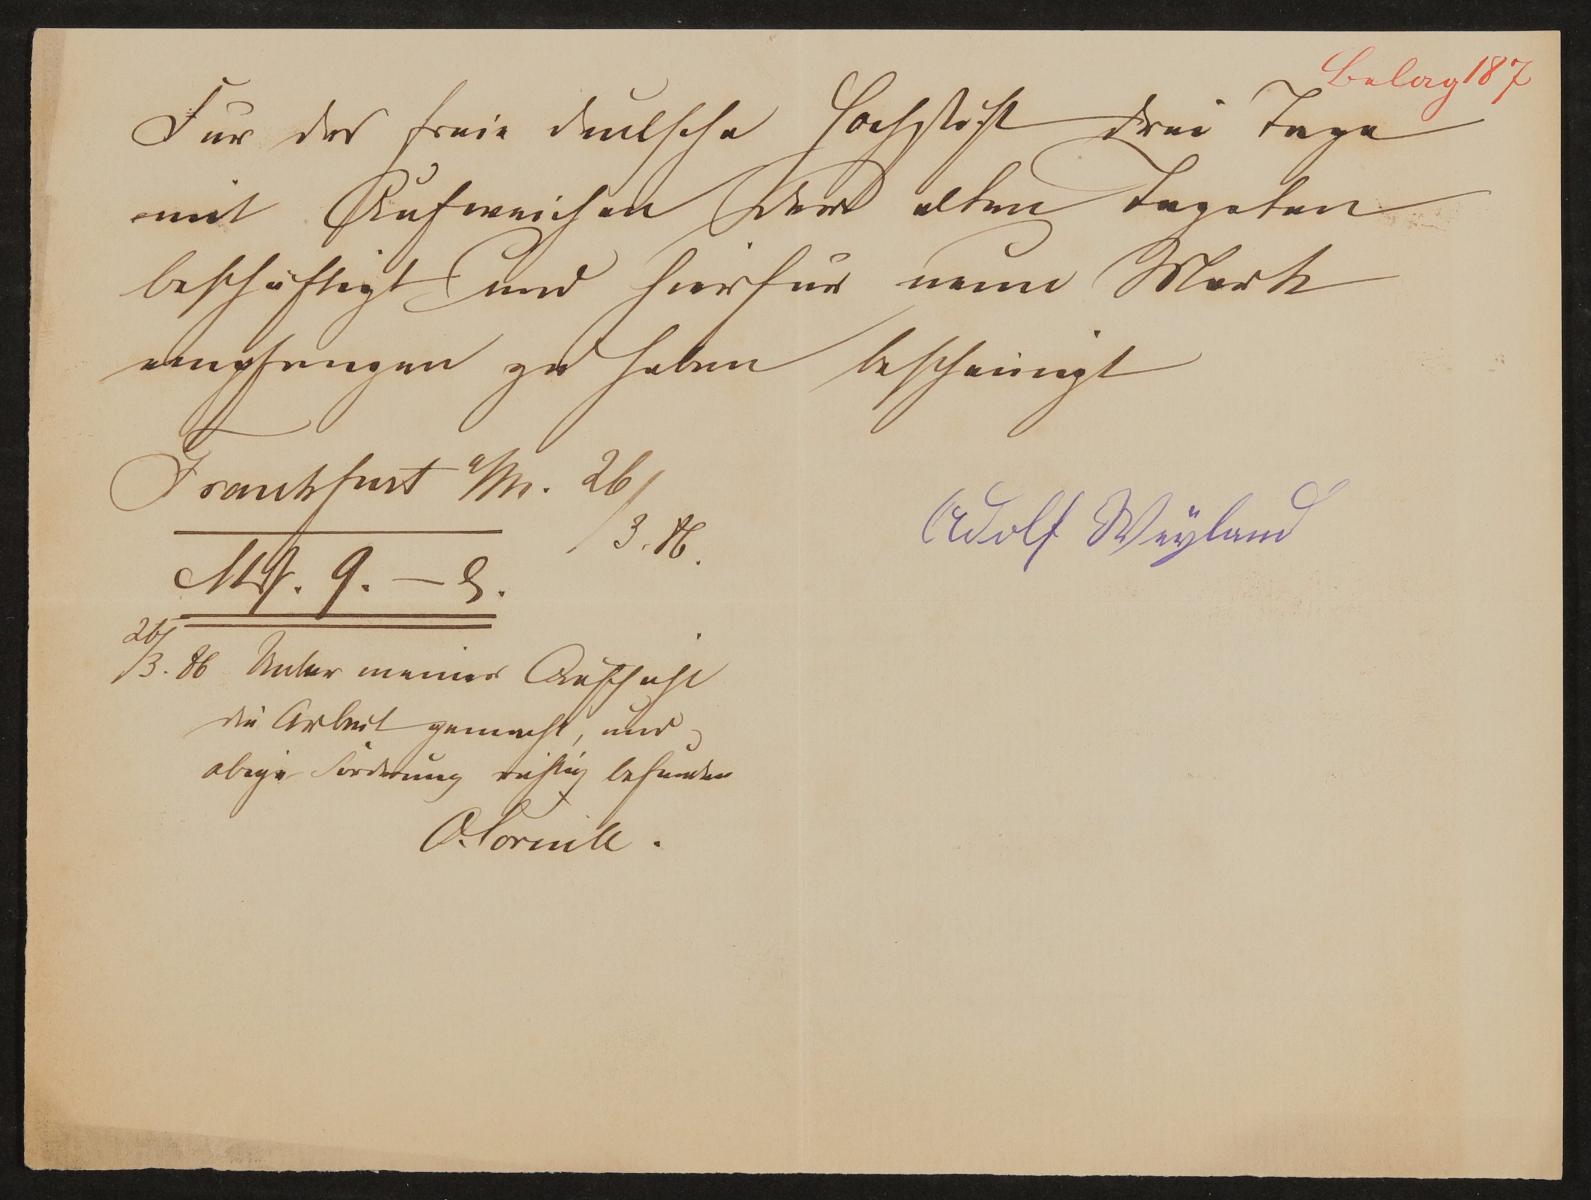 Belag 187
Für das freie deutsche Hochstift drei Tage
mit Aufweichen der alten Tapeten
beschäftigt und hierfür neun Mark
empfangen zu haben bescheinigt
Frankfurt a/M. 26/3. 86.
Adolf Weyland
Mk. 9. —
26/3. 86 Unter meiner Aufsicht
die Arbeit gemacht, und
obige Forderung richtig befunden
O. Cornill.